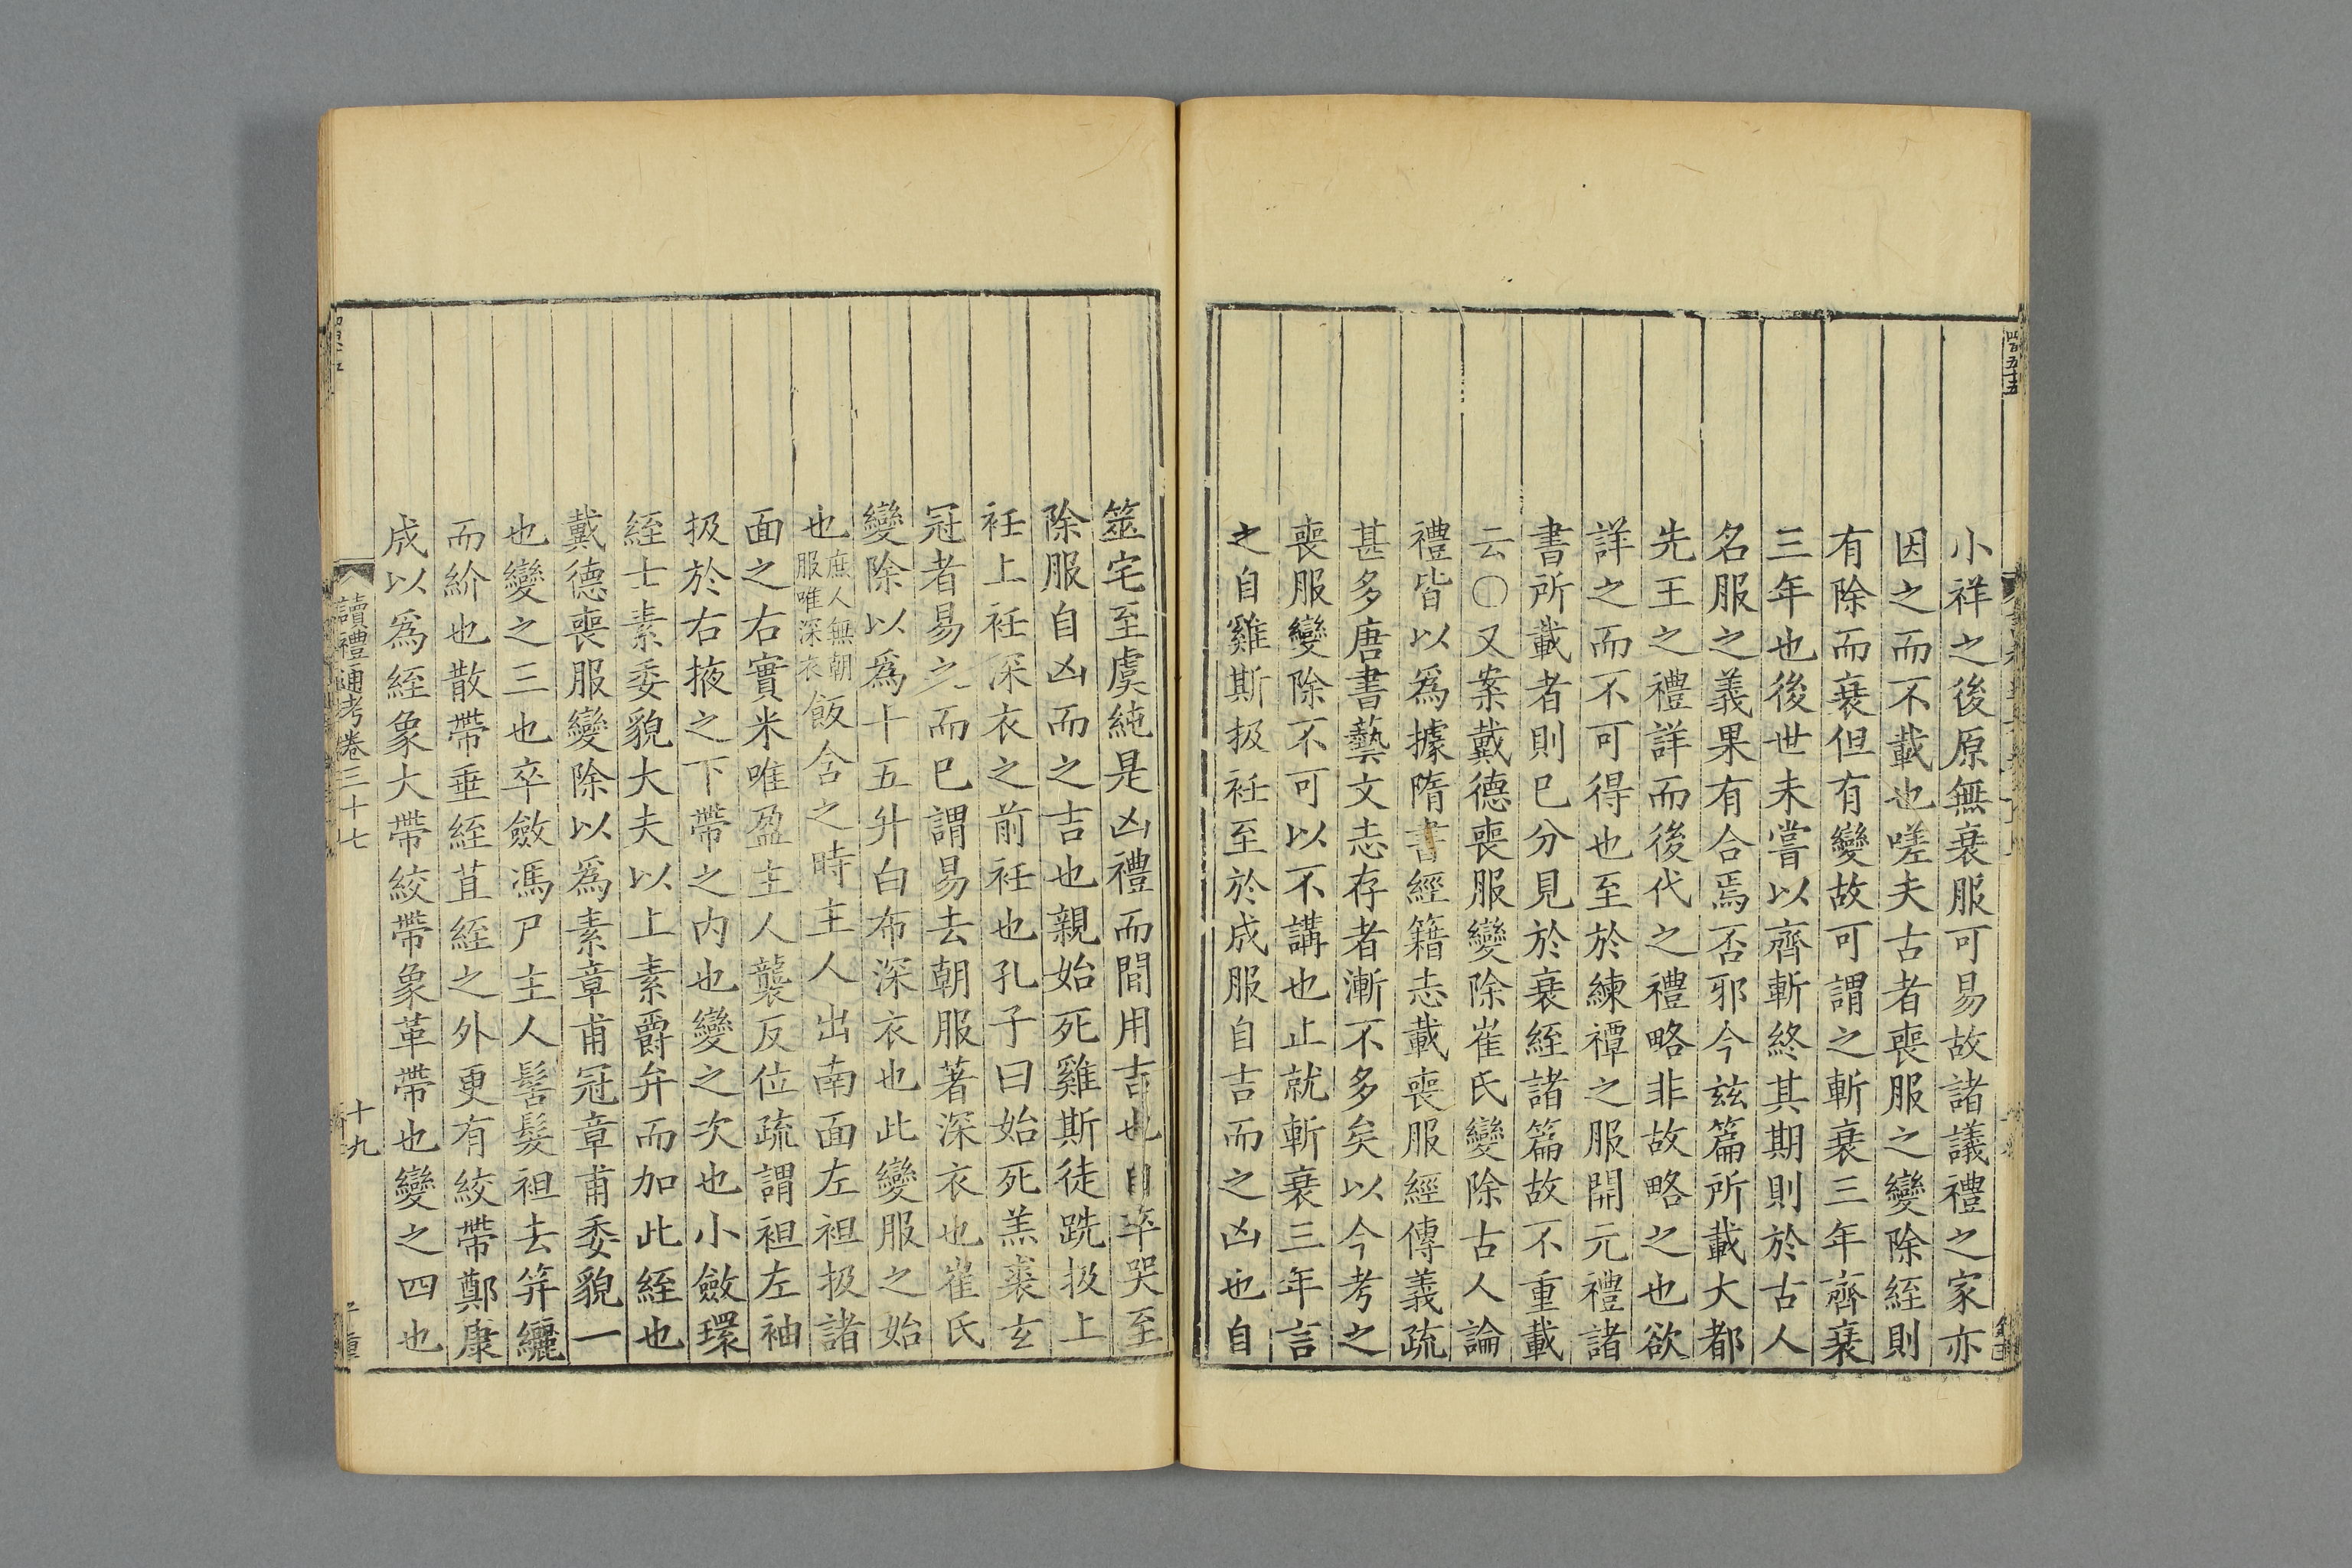 小祥之後原無衰服可易故諸議禮之家亦
因之而不載也嗟夫古者喪服之變除絰則
有除而衰但有變故可謂之斬衰三年齊衰
三年也後世未嘗以齊斬終其期則於古人
名服之義果有合焉否邪今玆篇所載大都
先王之禮詳而後代之禮略非故略之也欲
詳之而不可得也至於練禫之服開元禮諸
書所載者則已分見於衰絰諸篇故不重載
云〇又案戴德喪服變除崔氏變除古人論
禮皆以爲據隋書經籍志載喪服經傳義疏
甚多唐書藝文志存者漸不多矣以今考之
喪服變除不可以不講也止就斬衰三年言
之自雞斯扱衽至於成服自吉而之凶也自
筮宅至虞純是凶禮而間用吉也自卒哭至
除服自凶而之吉也親始死雞斯徒跣扱上
衽上衽深衣之前衽也孔子曰始死羔裘玄
冠者易之而已謂易去朝服著深衣也崔氏
變除以爲十五升白布深衣也此變服之始
也庶人無朝服唯深衣飯含之時主人出南面左袒扱諸
面之右實米唯盈主人襲反位疏謂袒左袖
扱於右掖之下帶之内也變之次也小斂環
絰士素委貌大夫以上素爵弁而加此絰也
戴德喪服變除以爲素章甫冠章甫委貌一
也變之三也卒斂馮尸主人髺髮袒去笄纚
而紒也散帶垂絰苴絰之外更有絞帶鄭康
成以爲絰象大帶絞帶象革帶也變之四也
讀禮通考卷三十七
十九